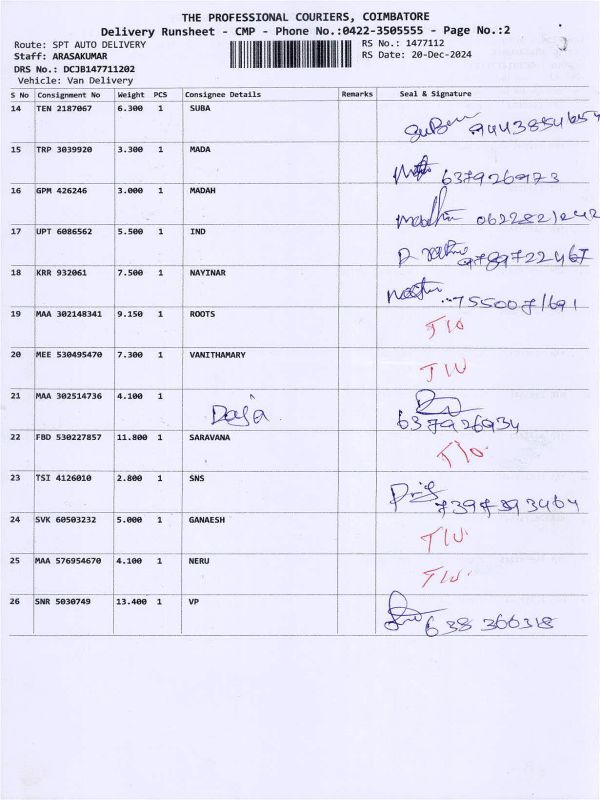 THE PROFESSIONAL COURIERS, COIMBATORE
Delivery Runsheet - CMP - Phone No.:0422-3505555 - Page No.:2
Route: SPT AUTO DELIVERY RS No.: 1477112
Staff: ARASAKUMAR RS Date: 20-Dec-2024
DRS No.: DCJB147711202
Vehicle: Van Delivery
S No Consignment No Weight PCS Consignee Details Remarks Seal & Signature
14 TEN 2187067 6.300 1 SUBA
15 TRP 3039920 3.300 1 MADA
16 GPM 426246 3.000 1 MADAH
17 UPT 6086562 5.500 1 IND 9789722467
18 KRR 932061 7.500 1 NAYINAR
19 MAA 302148341 9.150 1 ROOTS
20 MEE 530495470 7.300 1 VANITHAMARY
21 MAA 302514736 4.100 1
637926934
22 FBD 530227857 11.800 1 SARAVANA
23 TSI 4126010 2.800 1 SNS
7397393464
24 SVK 60503232 5.000 1 GANAESH
25 MAA 576954670 4.100 1 NERU
26 SNR 5030749 13.400 1 VP
638 366318